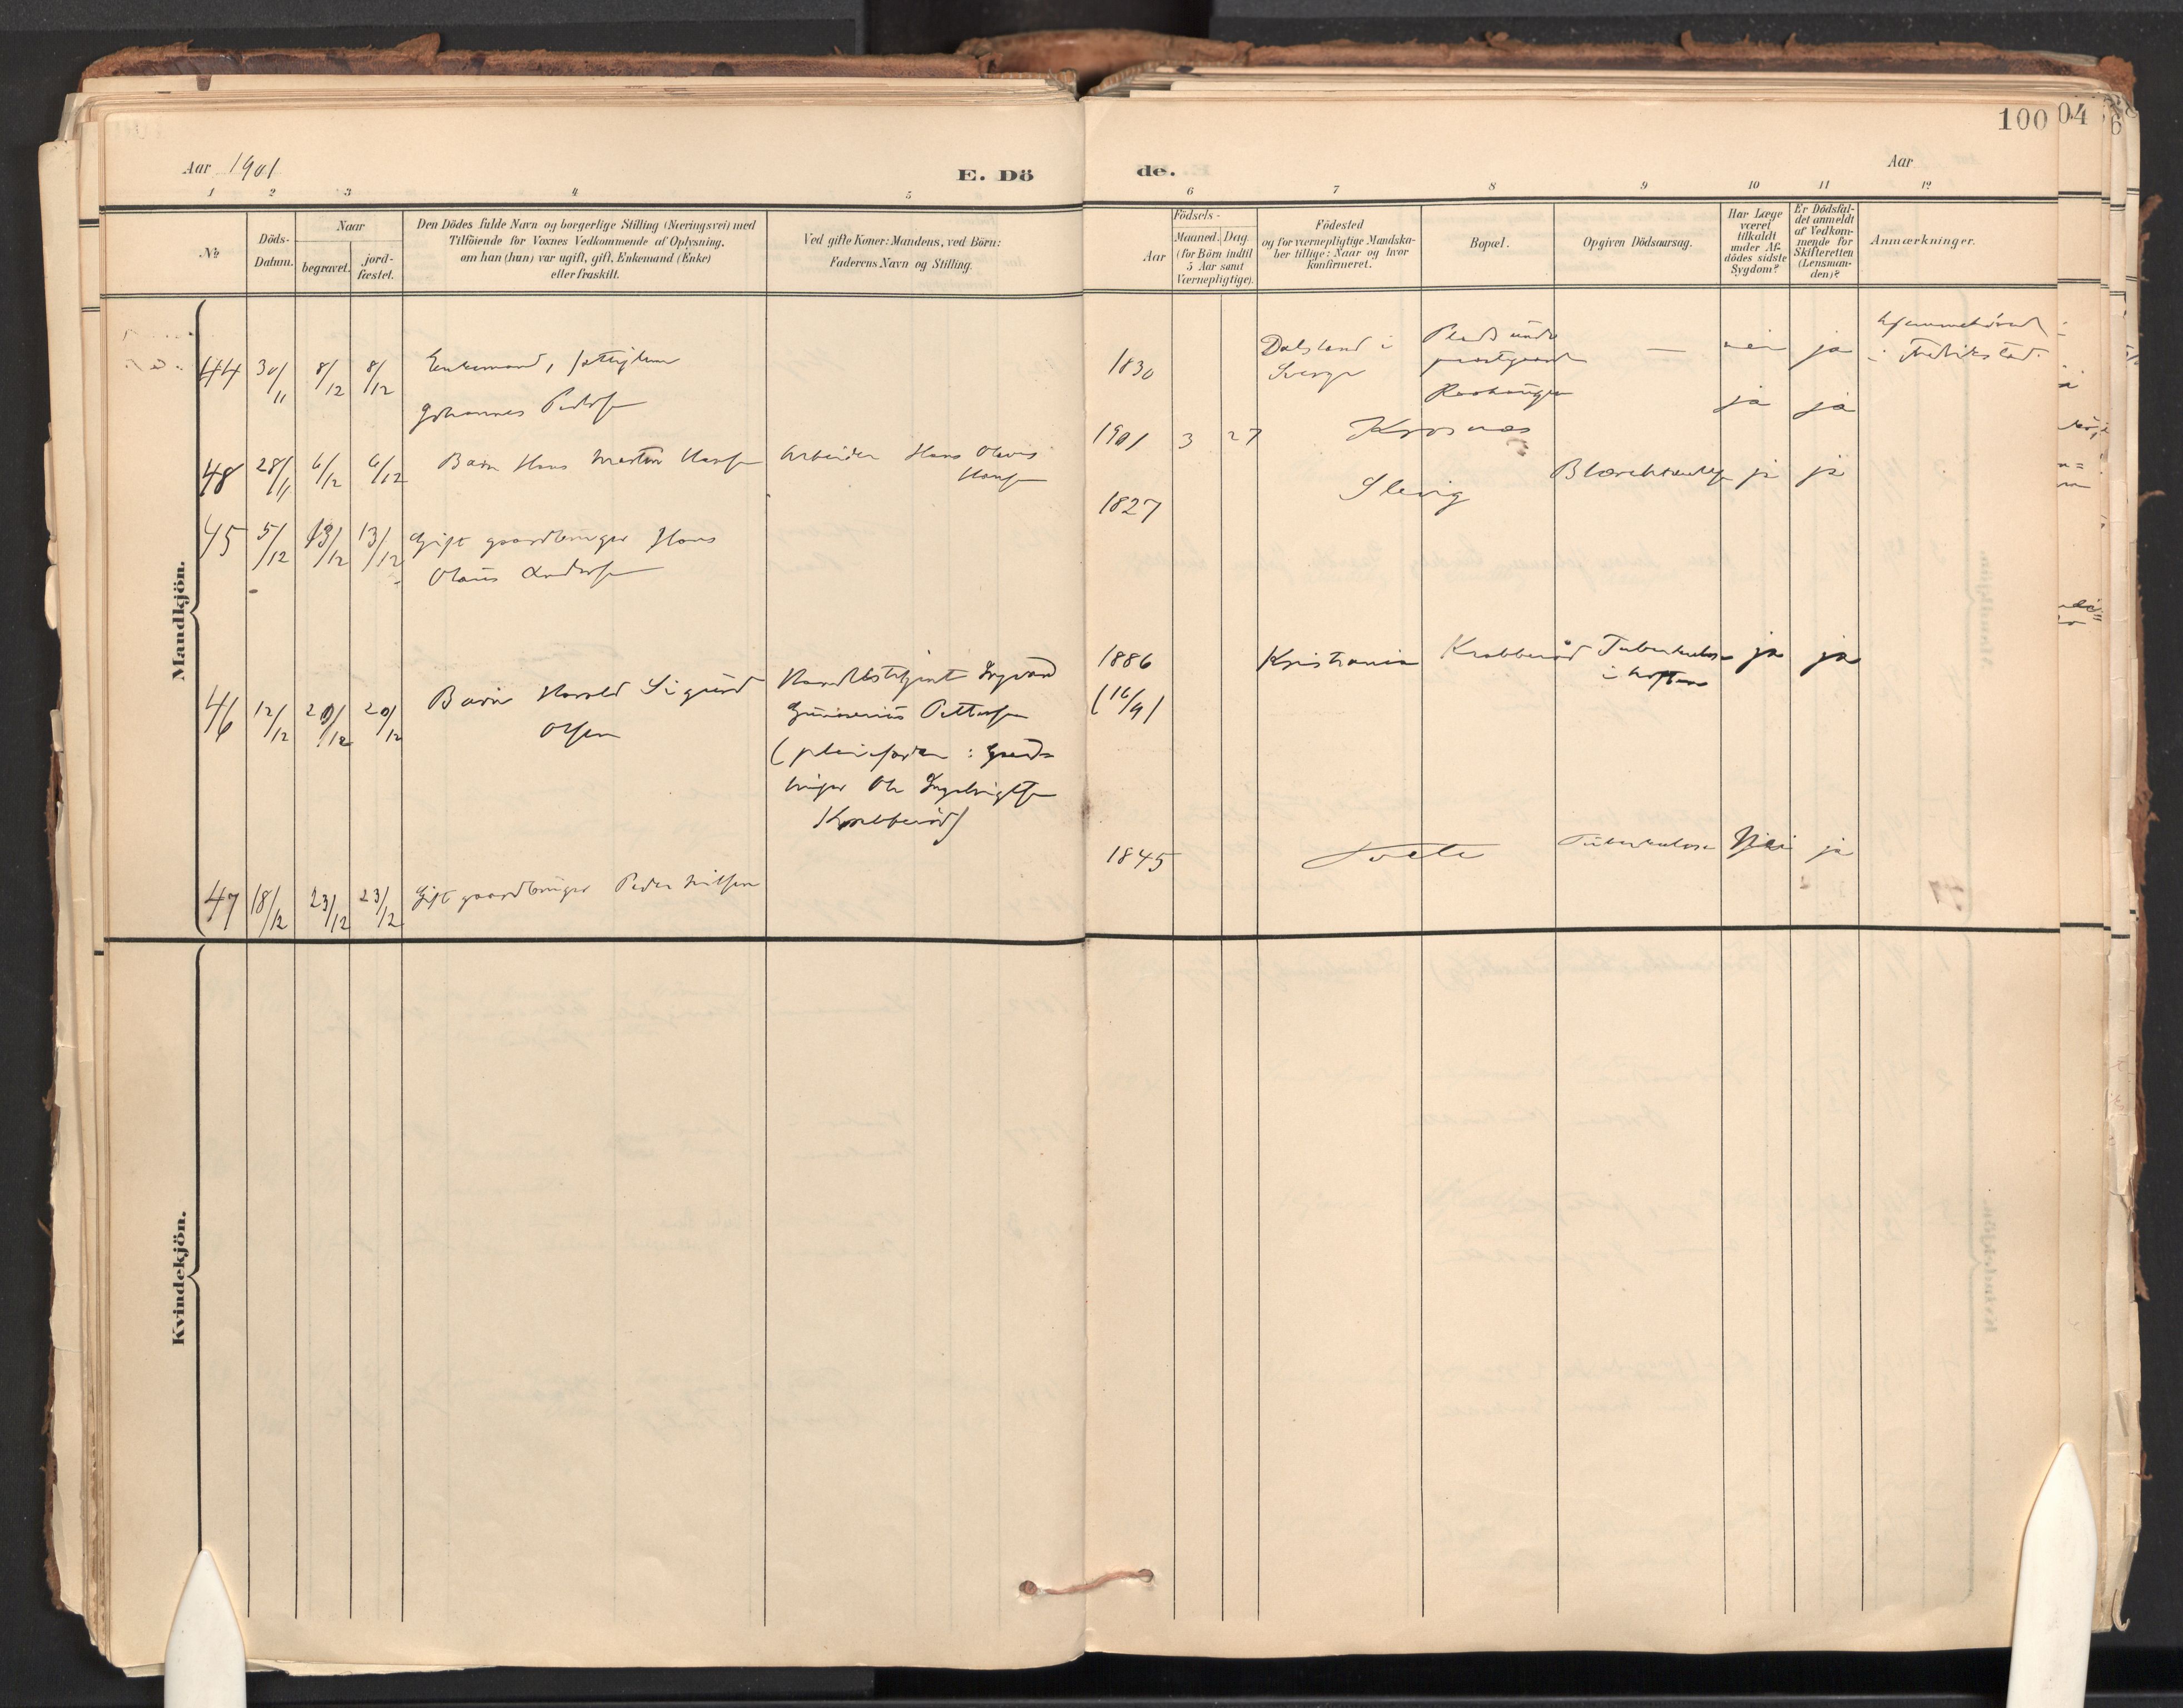 100
04
6
Aar 1901
E. Dö
de.
Aar
1 2 3 4 5 6 7 8 9 10 11 12
No
Döds-
Datum.
Naar
begravet.
jord-
fæstet.
Den Dödes fulde Navn og borgerlige Stilling (Næringsvei) med
Tilföiende for Voxnes Vedkommende af Oplysning,
om han (hun) var ugift, gift, Enkemand (Enke)
eller fraskilt.
Ved gifte Koner: Mandens, ved Börn:
Faderens Navn og Stilling.
Födsels-
Aar
Maaned. Dag.
(for Börn indtil
5 Aar samt
Værnepligtige).
Födested
og for værnepligtige Mandska-
ber tillige: Naar og hvor
konfirmeret.
Bopæl.
Opgiven Dödsaarsag.
Har Læge
været
tilkaldt
under Af-
dödes sidste
Sygdom?
Er Dödsfal-
det anmeldt
af Vedkom-
mende for
Skifteretten
(Lensman-
den)?
Anmærkninger.
Mandkjön.
44 30/11 8/12 8/12 Enkemand,
Johannes
1830 Dalsland i
Sverge
Plads under
— nei ja
i Fredrikstad.
48 28/11 6/12 6/12 Barn Hans Martin Hansen Arbeider Hans Olaves
Hansen
1901 3 27 Krosnes ja ja
45 5/12 13/12 13/12 Gift gaardbruger Hans
Olaus Andersen
1827 Slevig ja ja
46 12/12 20/12 20/12 Barn Harald Sigurd
Olsen
Ingvard
Gunnerius Pettersen
(pleiefader: Gaard-
bruger Ole Ingebrigtsen
Krabberöd)
1886
(16/9)
Kristiania Krabberöd Tuberkulose
i hoften
ja ja
47 18/12 23/12 23/12 Gift gaardbruger Peder Nilsen
1845 Tofte Tuberkulose Nei ja
Kvindekjön.